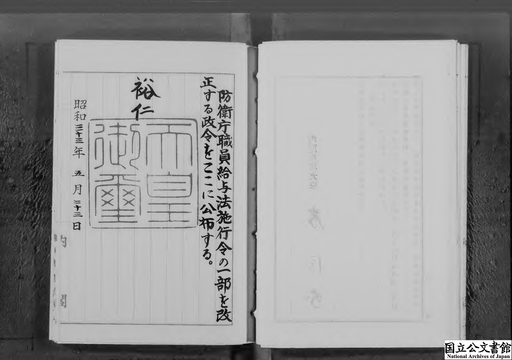 防衛庁職員給与法施行令の一部を改
正する政令をここに公布する。
裕仁
天皇
御璽
昭和三十三年五月二十三日
内閣
国立公文書館
National Archives of Japan